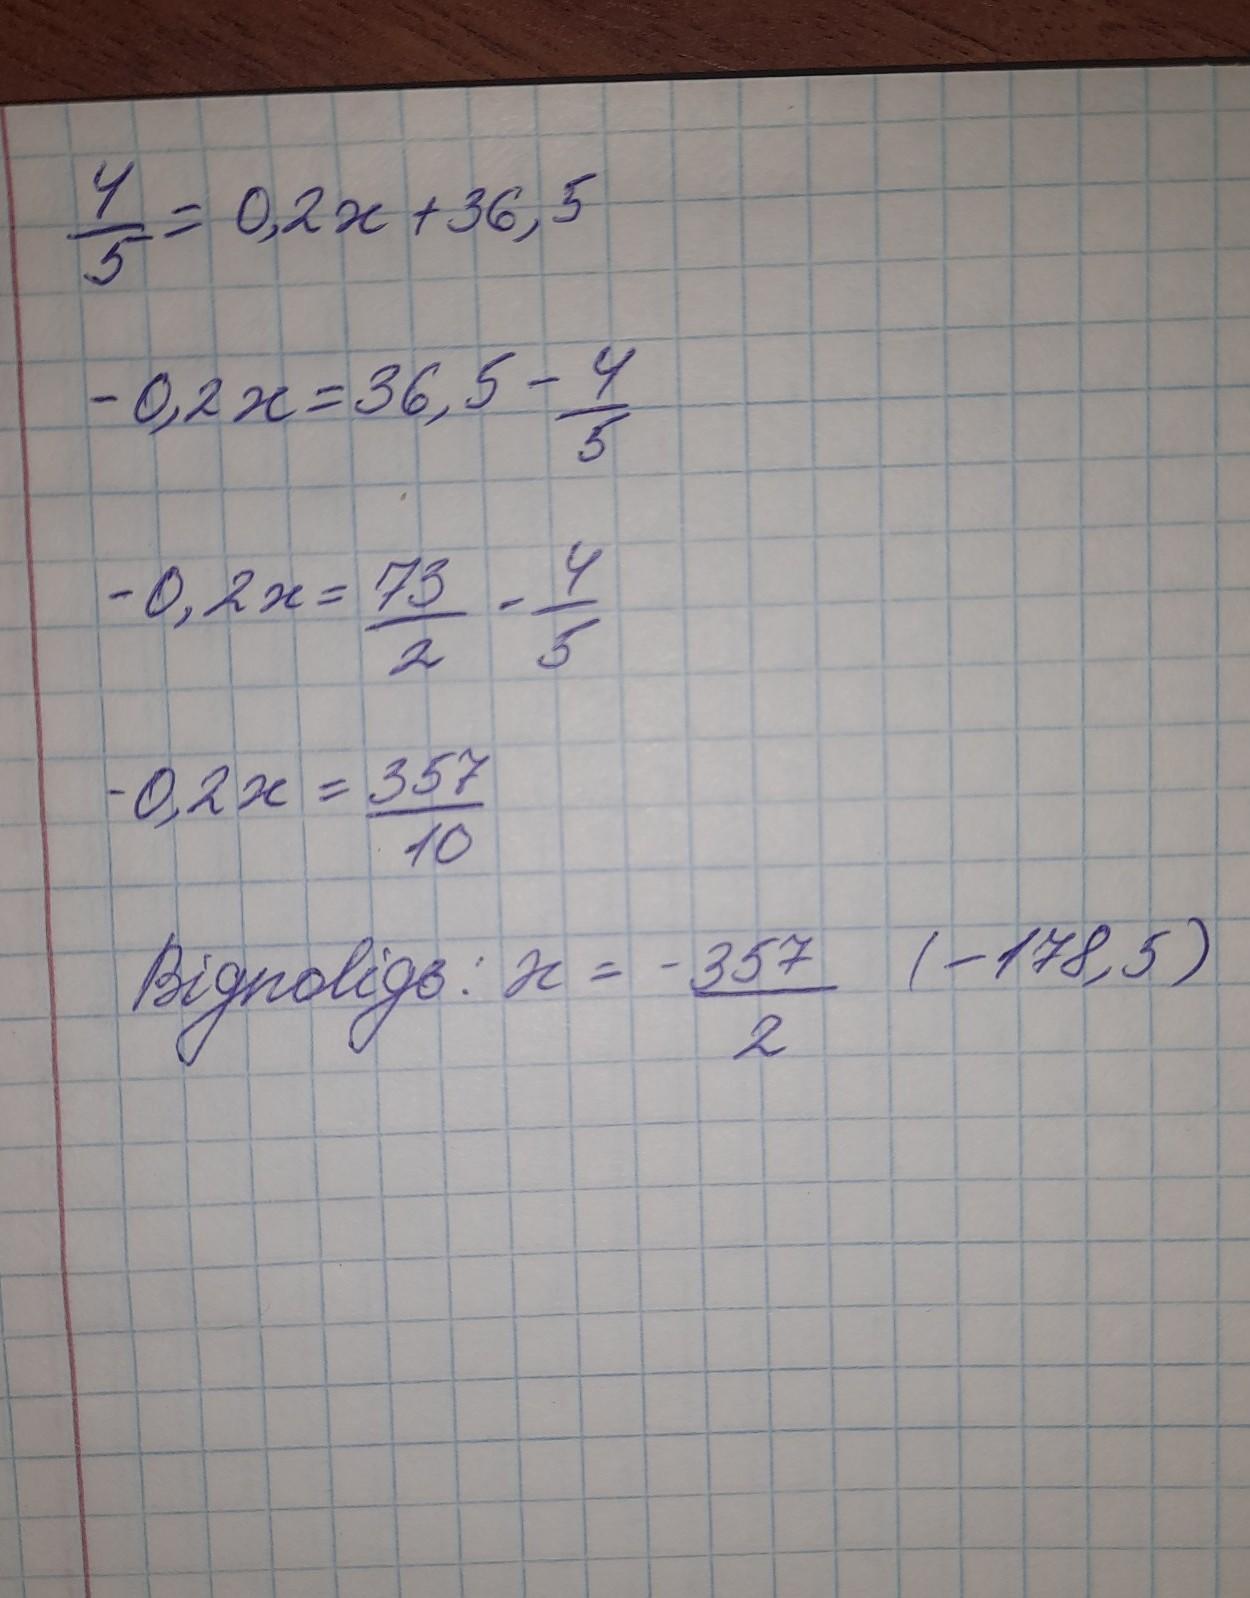 4/5 = 0,2x + 36,5
-0,2x = 36,5 - 4/5
-0,2x = 73/2 - 4/5
-0,2x = 357/10
Відповідь: x = -357/2 (-178,5)